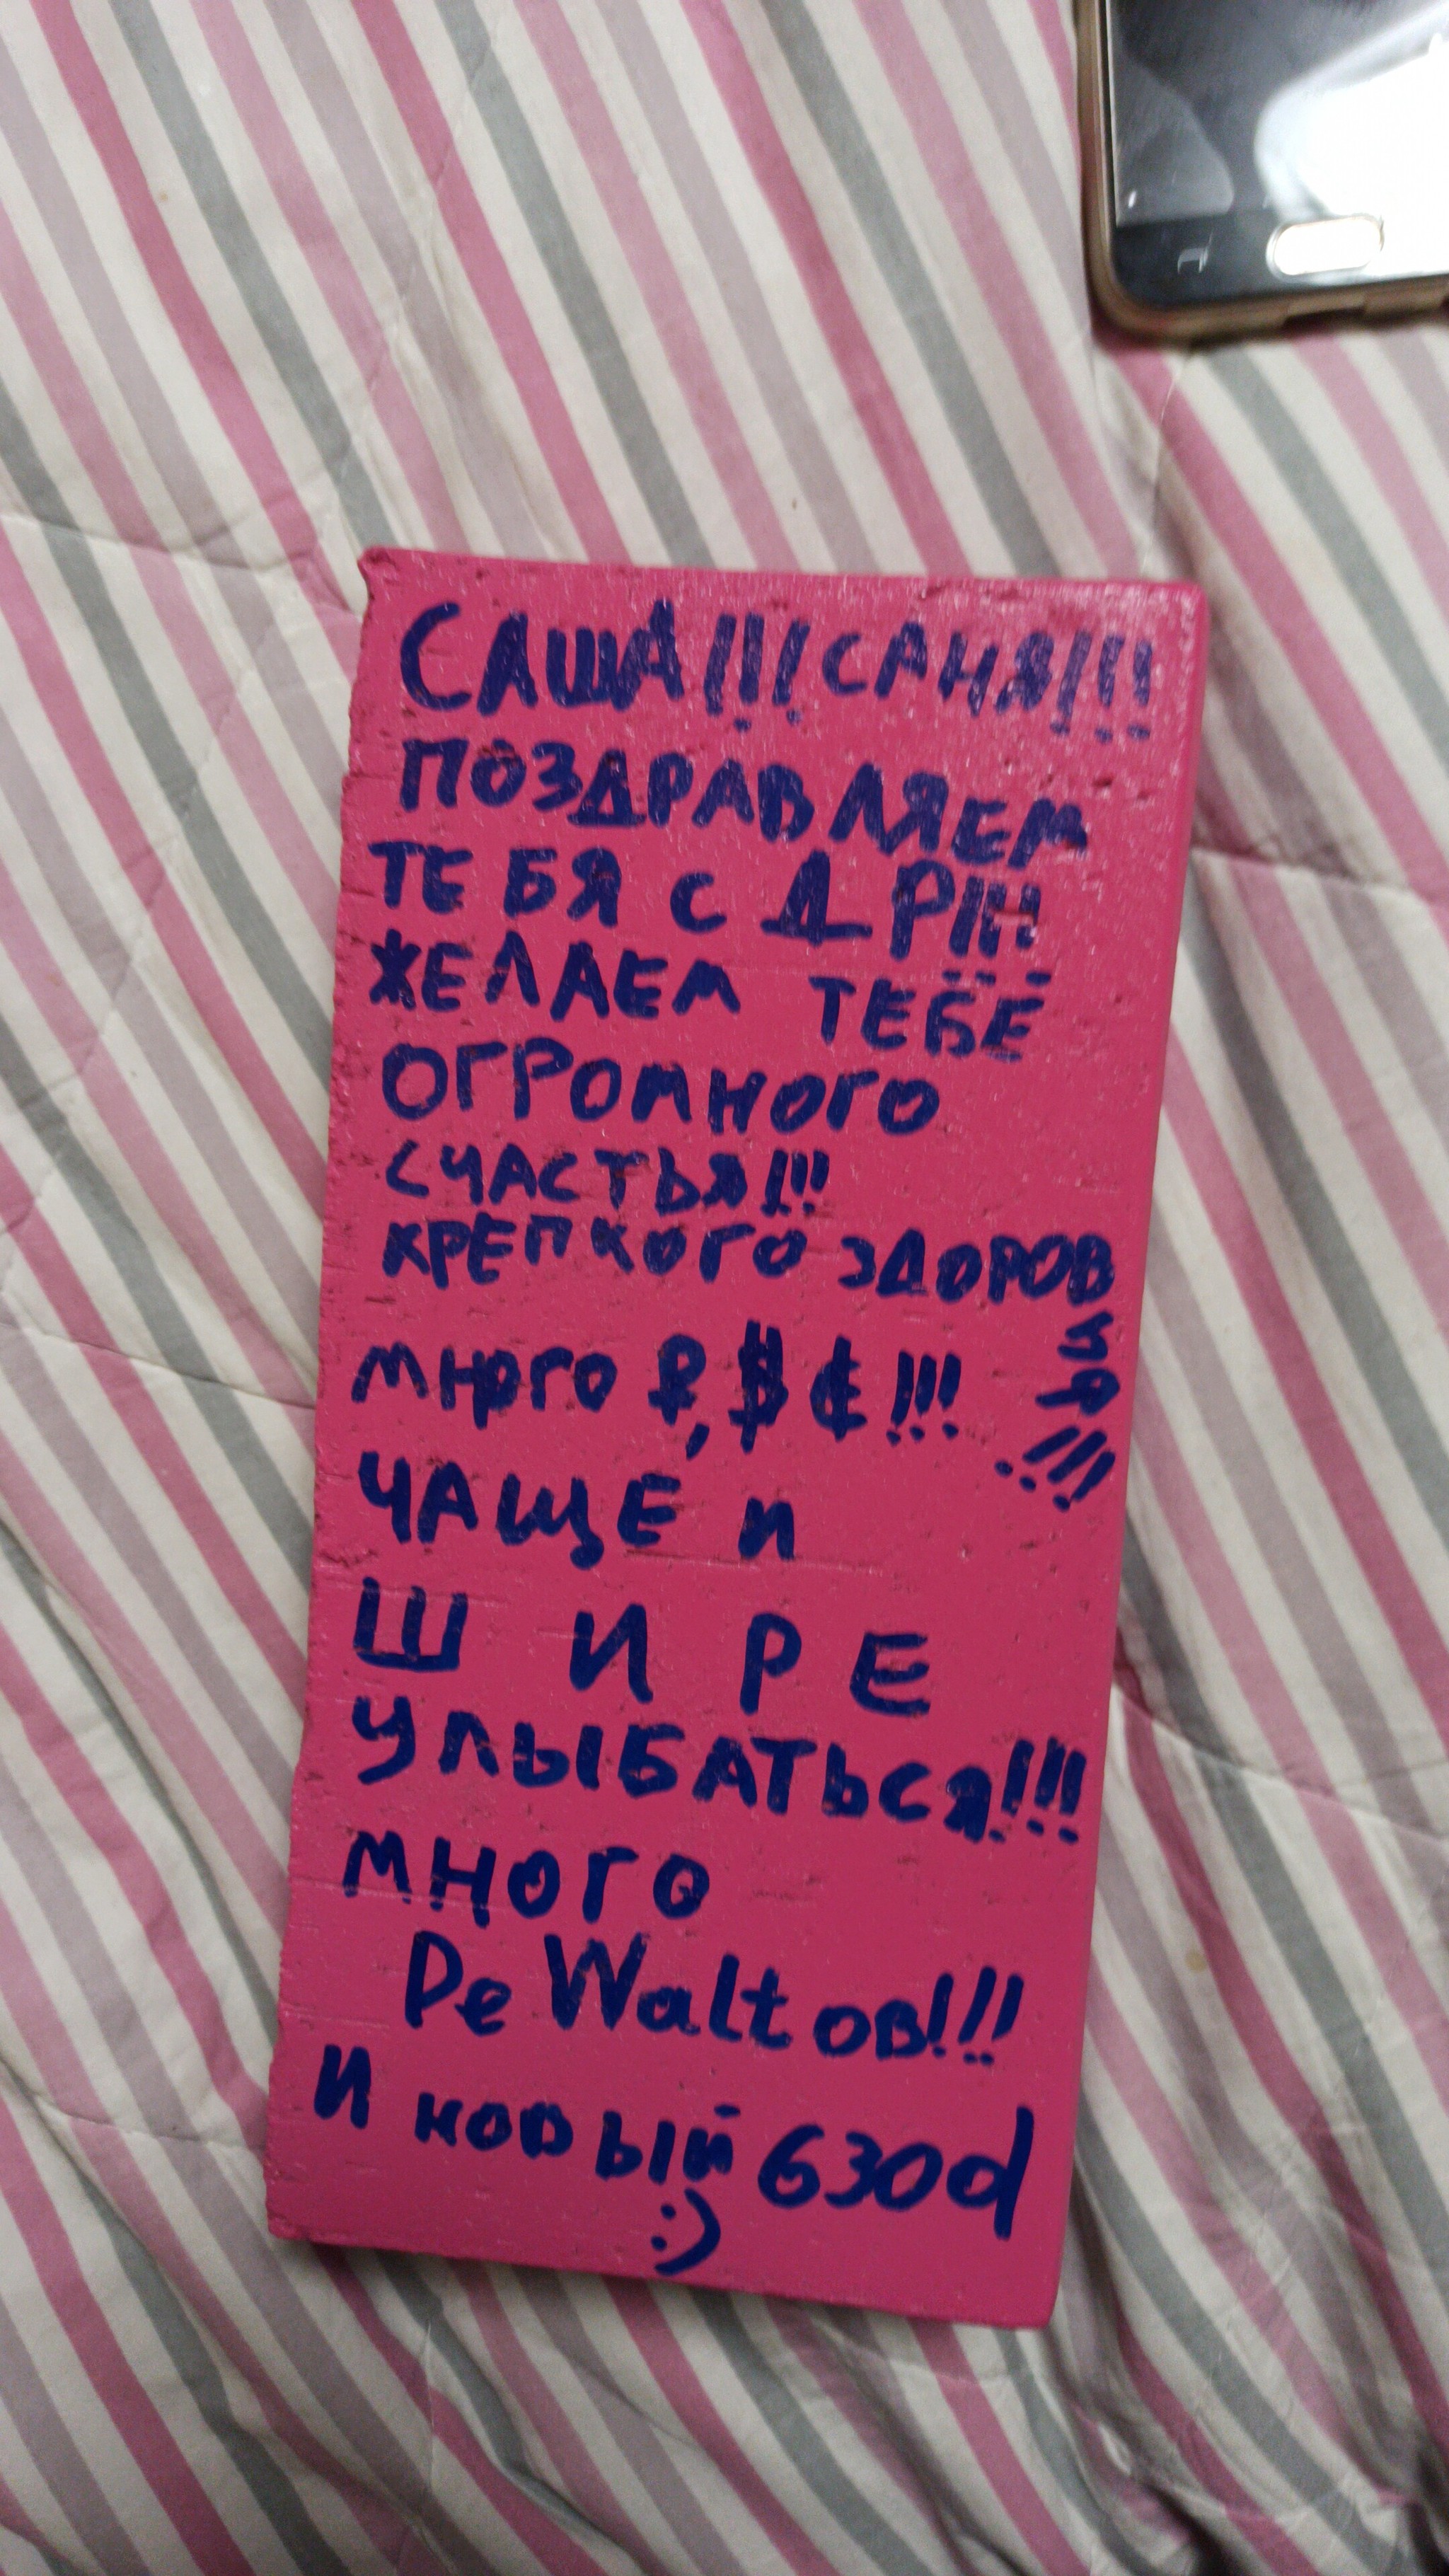 САША!!! САНЯ!!!
ПОЗДРАВЛЯЕМ
ТЕБЯ С ДР!!!
ЖЕЛАЕМ ТЕБЕ
ОГРОМНОГО
СЧАСТЬЯ!!!
КРЕПКОГО ЗДОРОВ
ья!!!
много ₽, $ € !!!
ЧАЩЕ и
Ш И Р Е
УЛЫБАТЬСЯ!!!
много
DeWaltов!!!
И новый 630d
:)